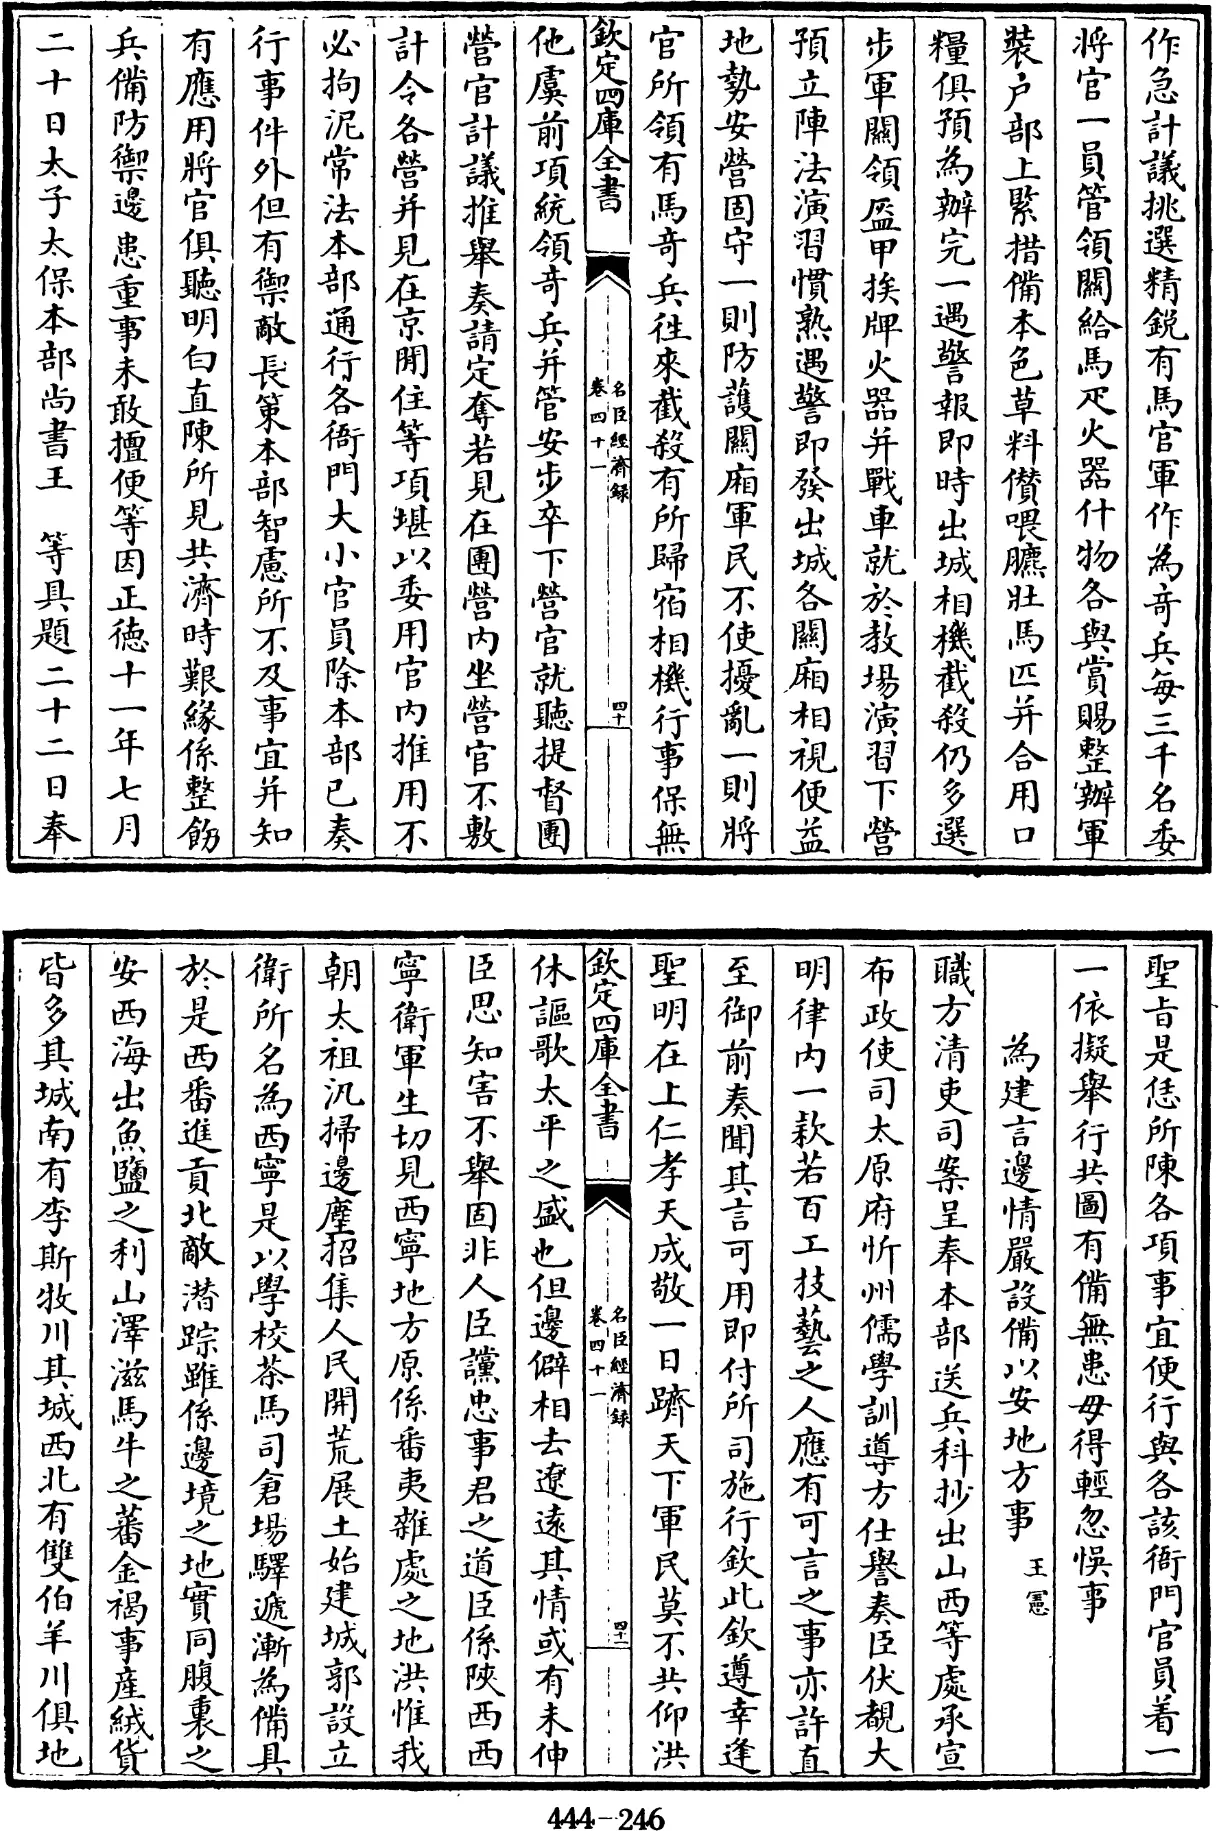 作急計議挑選精鋭有馬官軍作為竒兵每三千名委
將官一員管領關給馬疋火器什物各與賞賜整辦軍
裝户部上緊措備本色草料儧喂臕壯馬匹并合用口
糧俱預為辦完一遇警報即時出城相機截殺仍多選
步軍關領盔甲挨牌火器并戰車就於教場演習下營
預立陣法演習慣熟遇警即發出城各關廂相視便益
地勢安營固守一則防護關廂軍民不使擾亂一則將
官所領有馬竒兵徃來截殺有所歸宿相機行事保無
欽定四庫全書
名臣經濟録
卷四十一
四十
他虞前項統領竒兵并管安步卒下營官就聽提督團
營官計議推舉奏請定奪若見在團營内坐營官不敷
計令各營并見在京閒住等項堪以委用官内推用不
必拘泥常法本部通行各衙門大小官員除本部已奏
行事件外但有禦敵長策本部智慮所不及事宜并知
有應用將官俱聽明白直陳所見共濟時艱緣係整飭
兵備防禦邊患重事未敢擅便等因正德十一年七月
二十日太子太保本部尚書王　等具題二十二日奉
聖旨是恁所陳各項事宜便行與各該衙門官員着一
一依擬舉行共圖有備無患毋得輕忽悞事
為建言邊情嚴設備以安地方事　王憲
職方清吏司案呈奉本部送兵科抄出山西等處承宣
布政使司太原府忻州儒學訓導方仕譽奏臣伏覩大
明律内一款若百工技藝之人應有可言之事亦許直
至御前奏聞其言可用即付所司施行欽此欽遵幸逢
聖明在上仁孝天成敬一日躋天下軍民莫不共仰洪
欽定四庫全書
名臣經濟録
卷四十一
四十一
休謳歌太平之盛也但邊僻相去遼遠其情或有未伸
臣思知害不舉固非人臣讜忠事君之道臣係陜西西
寧衛軍生切見西寧地方原係番夷雜處之地洪惟我
朝太祖汎掃邊塵招集人民開荒展土始建城郭設立
衛所名為西寧是以學校茶馬司倉場驛遞漸為備具
於是西番進貢北敵潛踪雖係邊境之地實同腹裏之
安西海出魚鹽之利山澤滋馬牛之蕃金褐事産絨貨
皆多其城南有李斯牧川其城西北有雙伯羊川俱地
444-246